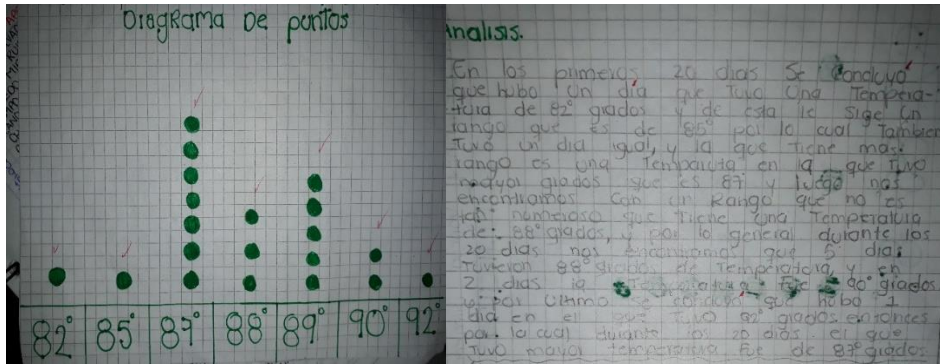 Diagrama De puntos
82° 85° 87° 88° 89° 90° 92°
Analisis.
En los primeros 20 dias Se Concluyo
que hubo Un día que Tuvo Una Tempera-
tura de 82° grados y de esta le sige Un
rango que es de 85° por lo cual Tambien
Tuvo un dia igual, y la que tiene mas
rango es una en la que Tuvo
mayor grados que es 87° y luego nos
encontramos con un Rango que no es
tan numeroso que Tiene Una Temperatura
de: 88° grados, y por lo general durante los
20 dias nos encontramos que 5 dias
Tuvieron 88° grados de Temperatura y en
2 dias la Temperatura Fue 90° grados
y por Ultimo se que hubo 1
dia en el que Tuvo 92° grados entonces
por lo cual durante los 20 dias el que
Tuvo mayor temperatura fue de 87° grados.